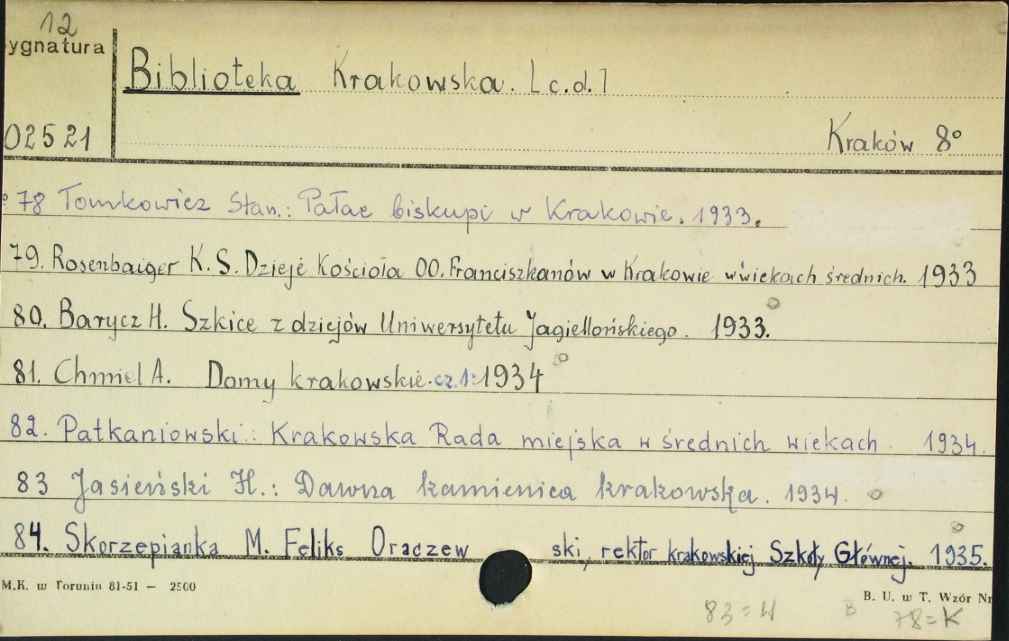 12
ygnatura
Biblioteka Krakowska. [c.d.]
02521
Kraków 8°
78 Tomkowicz Stan.: Pałac biskupi w Krakowie. 1933.
79. Rosenbaiger K. S. Dzieje Kościoła OO. Franciszkanów w Krakowie w wiekach średnich. 1933
80. Barycz H. Szkice z dziejów Uniwersytetu Jagiellońskiego. 1933.
81. Chmiel A. Domy krakowskie. cz.1: 1934
82. Patkaniowski: Krakowska Rada miejska w średnich wiekach. 1934.
83 Jasieński H.: Dawna kamienica krakowska. 1934.
84. Skorzepianka M. Feliks Oraczew ski, rektor krakowskiej Szkoły Głównej. 1935.
M.K. w Toruniu 81-51 — 2500
B. U. w T. Wzór Nr
83=H B 78=K